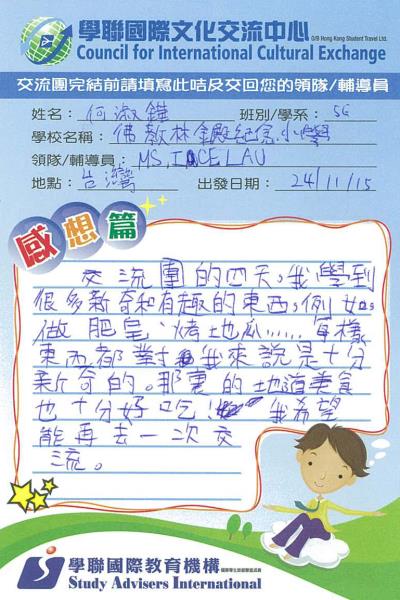 學聯國際文化交流中心 O/B Hong Kong Student Travel Ltd.
Council for International Cultural Exchange
交流團完結前請填寫此咭及交回您的領隊/輔導員
姓名: 何淑鏵 班別/學系: 5G
學校名稱: 佛教林金殿紀念小學
領隊/輔導員: MS. LAU
地點: 台灣 出發日期: 24/11/15
感想篇
交流團的四天,我學到
很多新奇和有趣的東西,例如:
做肥皂、烤地瓜......每樣
東西都對我來說是十分
新奇的。那裏的地道美食
也十分好吃!我希望
能再去一次交
流。
學聯國際教育機構
Study Advisers International